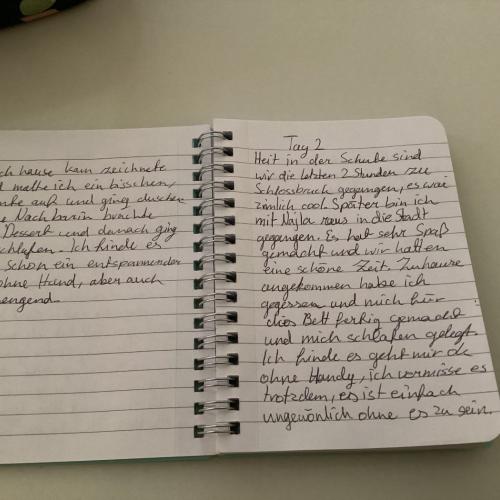 ch hause kam zeichnete
d malte ich ein bisschen,
mte auf und ging duschen
e Nachbarin brachte
Dessert und danach ging
schlafen. Ich finde es
schon ein entspannender
ohne Hand, aber auch
engend.
Tag 2
Heit in der Schule sind
wir die letzten 2 Stunden zu
Schlossbruch gegangen, es war
zimlich cool. Später bin ich
mit Najla raus in die Stadt
gegangen. Es hat sehr Spaß
gemacht und wir hatten
eine schöne Zeit. Zuhause
angekommen habe ich
gegessen und mich für
das Bett fertig gemacht
und mich schlafen gelegt.
Ich finde es geht mir ok
ohne Handy, ich vermisse es
trotzdem, es ist einfach
ungewönlich ohne es zu sein.